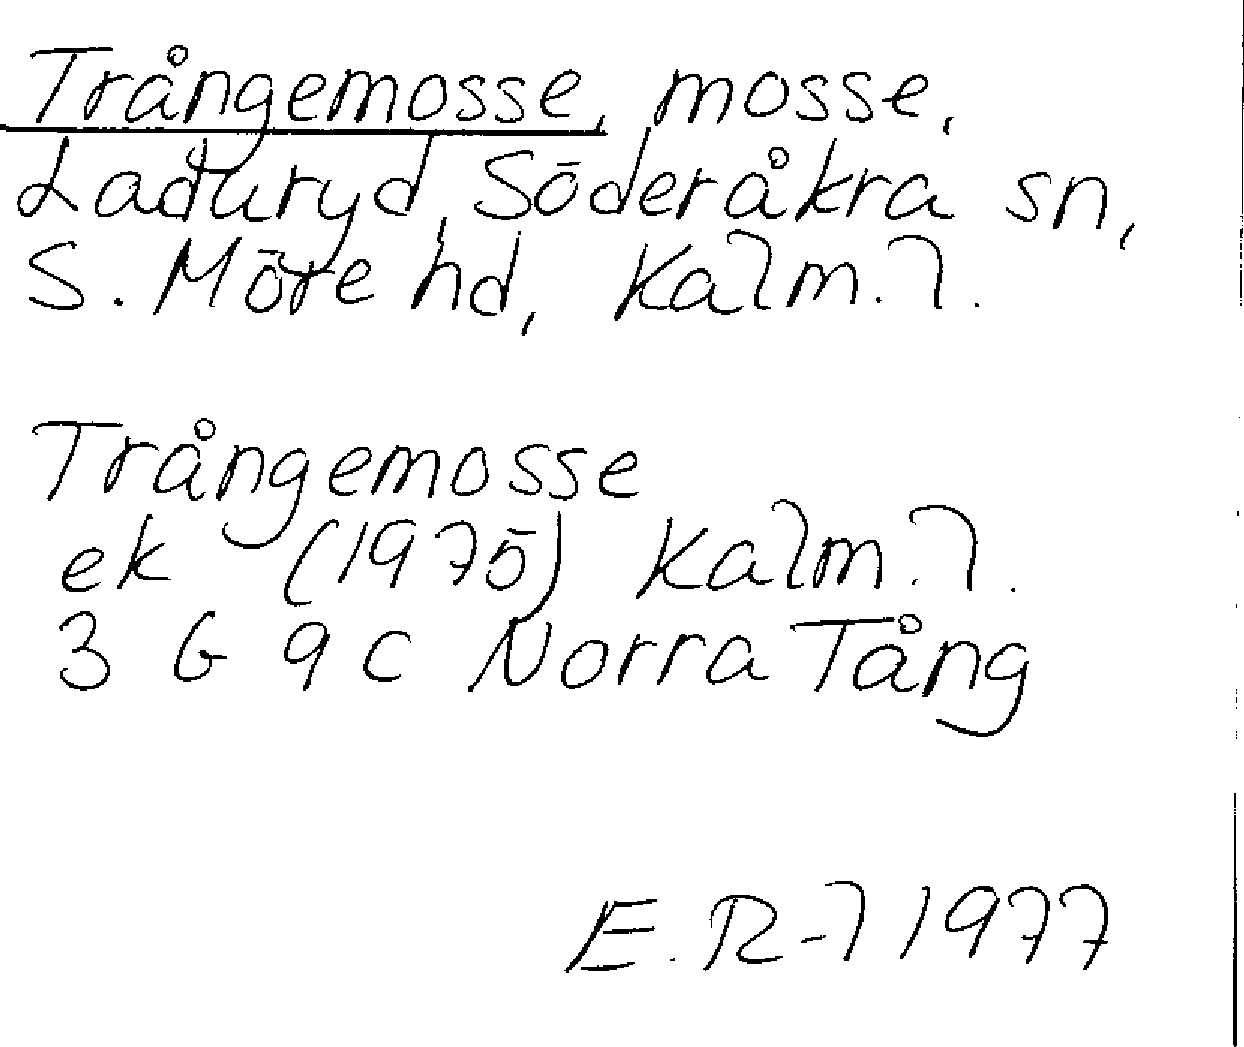 Trångemosse, mosse,
Laduryd, Söderåkra sn,
S. Möre hd, Kalm. l.
Trångemosse
ek (1975) Kalm. l.
3 G 9 c Norra Tång
E. R-l 1977